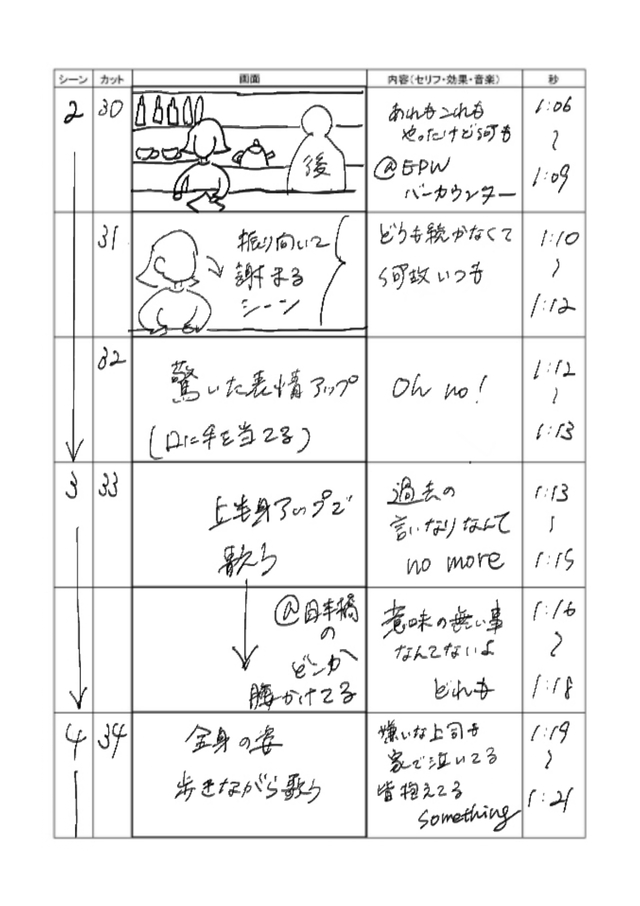 シーン カット 画面 内容(セリフ・効果・音楽) 秒
2 30
後
あれもこれも
やったけど何も
@EPW
バーカウンター
1:06
〜
1:09
31
振り向いて
謝まる
シーン
どうも続かなくて
何故いつも
1:10
〜
1:12
32
驚いた表情アップ
(口に手を当てる)
Oh no!
1:12
〜
1:13
3 33
上半身アップで
歌う
過去の
言いなりなんて
no more
1:13
〜
1:15
@日本橋
の
どこかへ
腰かけてる
意味の無い事
なんてないよ
どれも
1:16
〜
1:18
4 34
全身の姿
歩きながら歌う
嫌いな上司も
家で泣いてる
皆抱えてる
something
1:19
〜
1:21